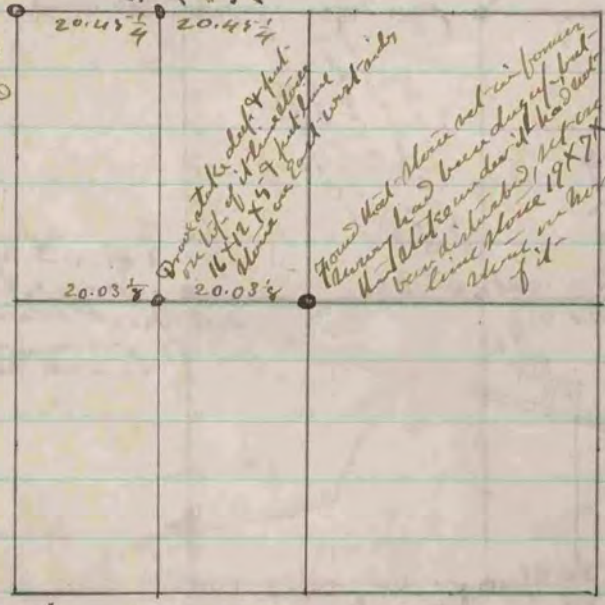 20.45 1/4 20.45 1/4
Drove stake deep & put
on top of it lime stone
16 x 12 x 5 & put lime
stone on East & west side
Found that stone set in former
survey had been dug up but
that stake under it had not
been disturbed, set on
lime stone 19 x 7 x
stone on No
of it
20.03 1/8 20.03 1/8